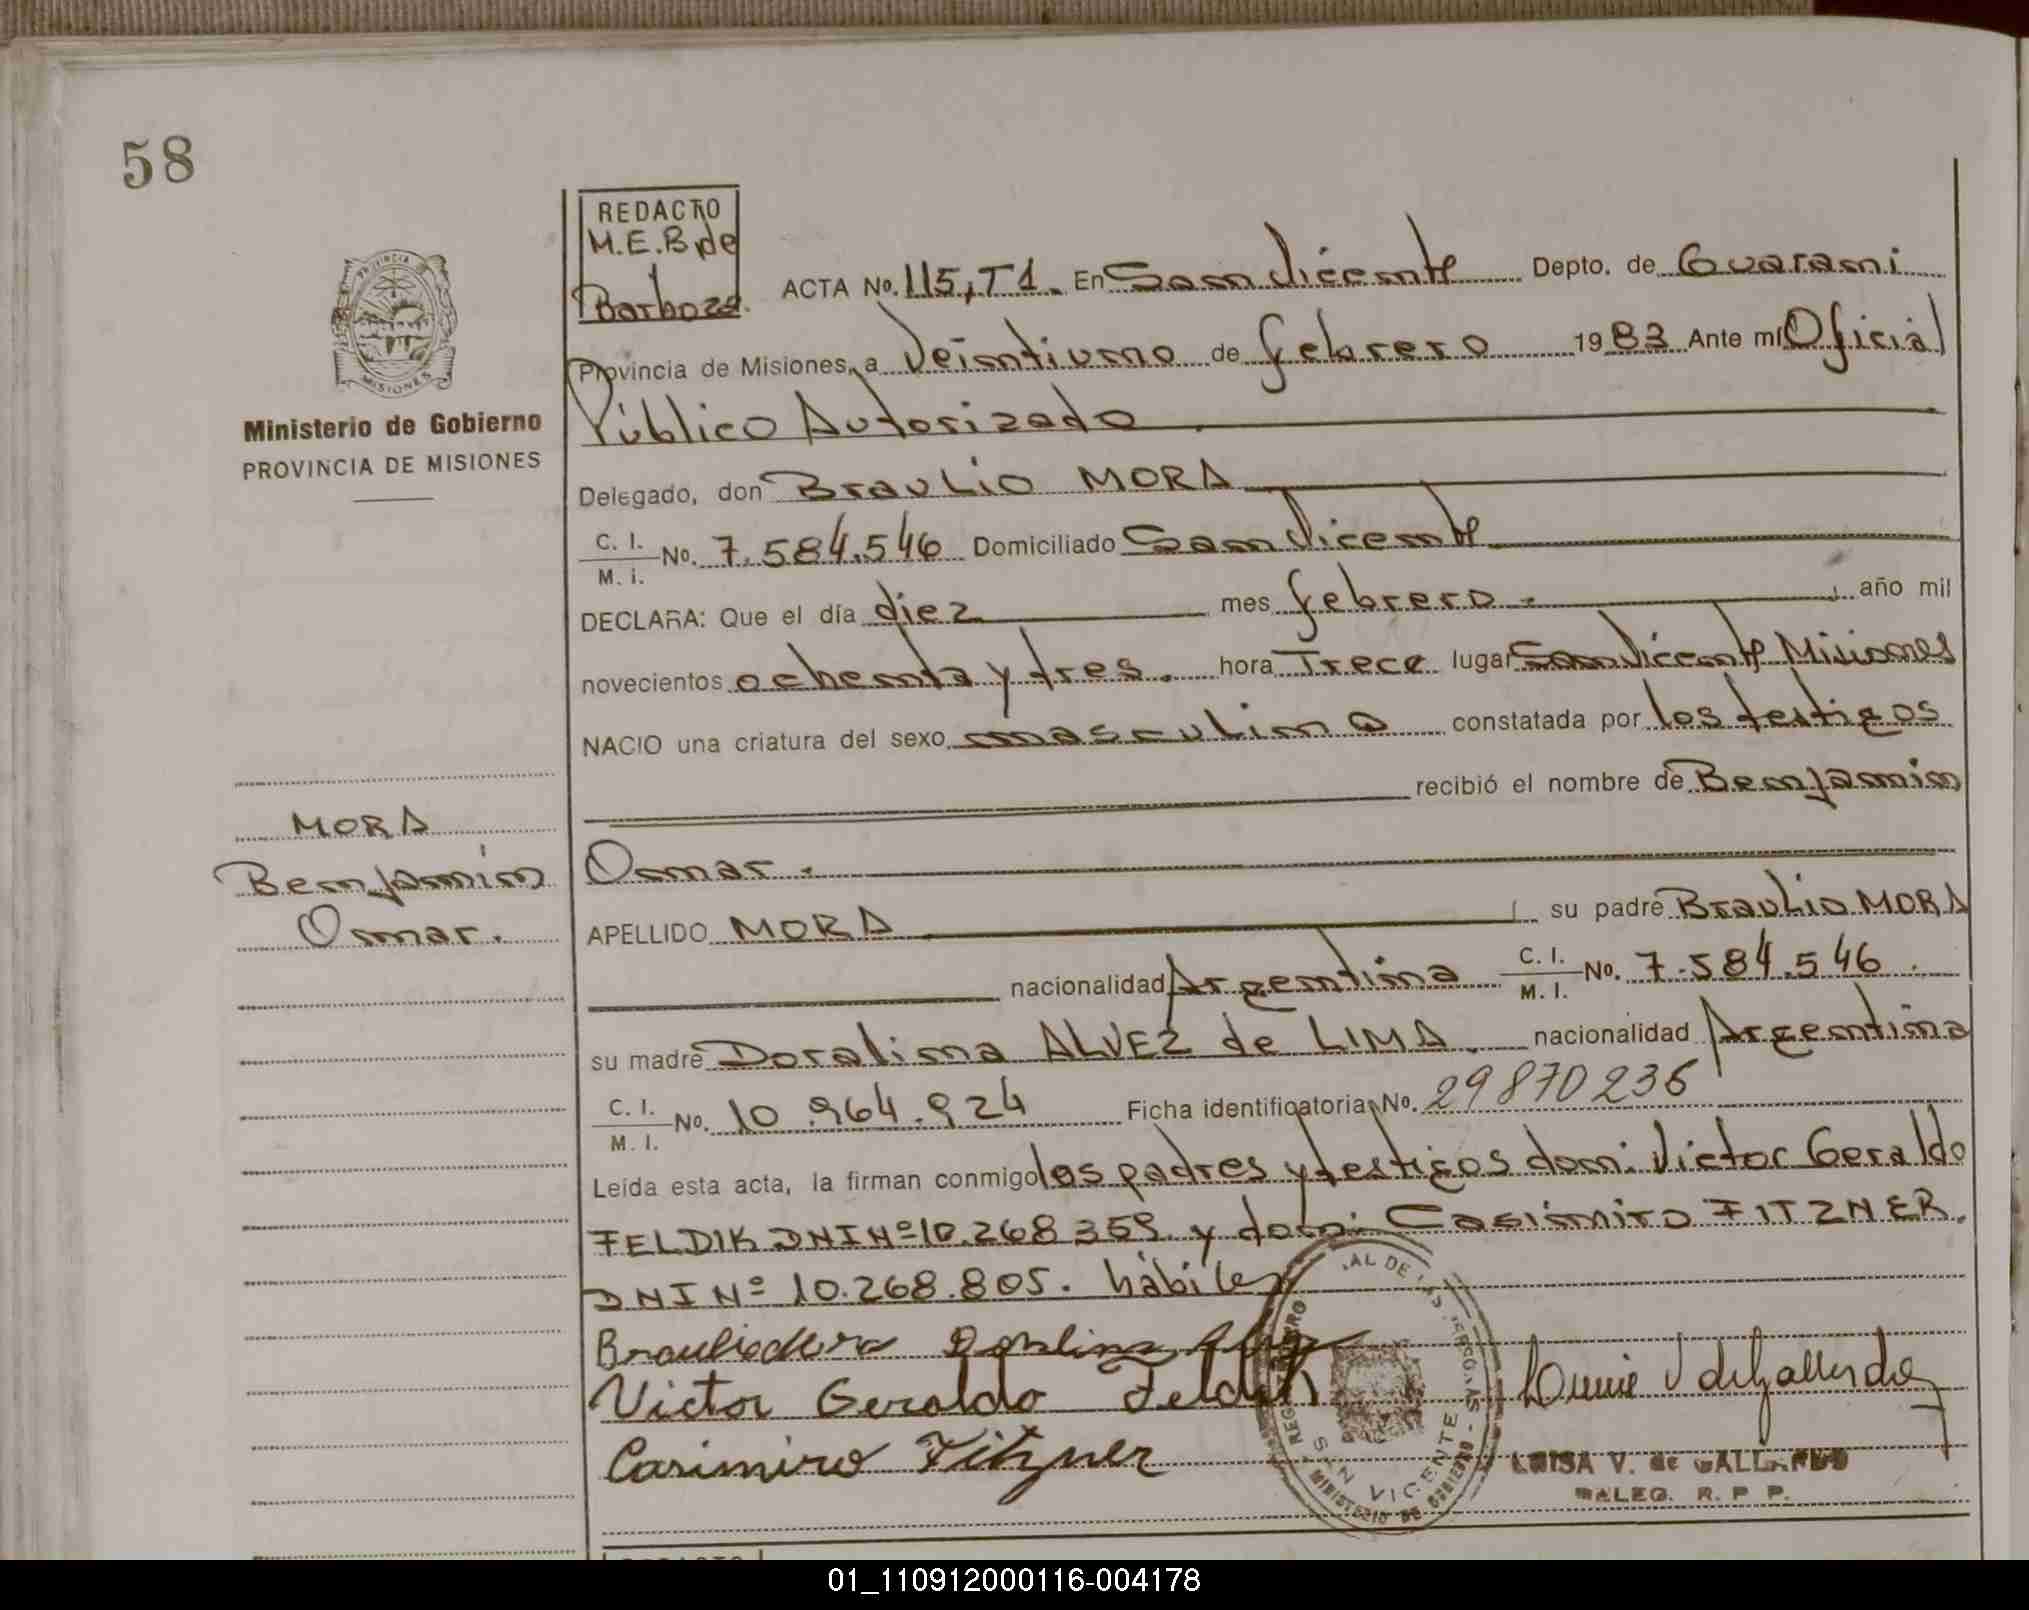 58
REDACTO
M.E.B de
Barboza.
ACTA No. 115, T1. En San Vicente Depto. de Guarani
Provincia de Misiones, a Veintiuno de febrero 1983 Ante mí Oficial
Público Autorizado
Ministerio de Gobierno
PROVINCIA DE MISIONES
Delegado, don Braulio MORA
C. I. / M. i. No. 7.584.546 Domiciliado San Vicente
DECLARA: Que el día diez mes febrero. año mil
novecientos ochenta y tres. hora Trece lugar San Vicente Misiones
NACIO una criatura del sexo masculino constatada por los testigos
recibió el nombre de Benjamin
MORA
Benjamín
Omar.
Omar.
APELLIDO MORA su padre Braulio MORA
nacionalidad Argentina C. I. / M. I. No. 7.584.546.
su madre Doralina ALVEZ de LIMA. nacionalidad Argentina
C. I. / M. I. No. 10.964.924 Ficha identificatoria No. 29870236
Leída esta acta, la firman conmigo los padres y testigos don: Victor Geraldo
FELDIK DNI Nº 10.268.359 y don: Casimiro FITZNER.
DNI Nº 10.268.805. hábiles
Braulio Mora Doralina
Victor Geraldo Feldik
Casimiro Fitzner
SAN VICENTE
MINISTERIO DE GOBIERNO
LUISA V. de GALLARDO
DALEG. R. P. P.
01_110912000116-004178